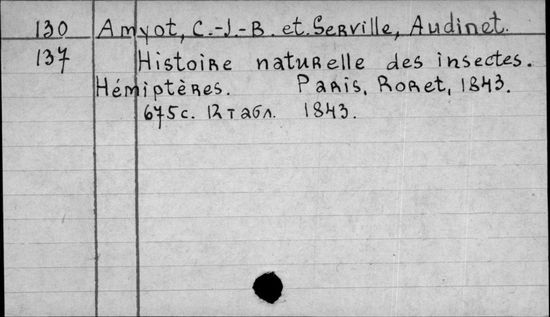 130 Amyot, C.-J.-B. et. Serville, Audinet.
137 Histoire naturelle des insectes.
Hémiptères. Paris, Roret, 1843.
675 с. 12 табл. 1843.